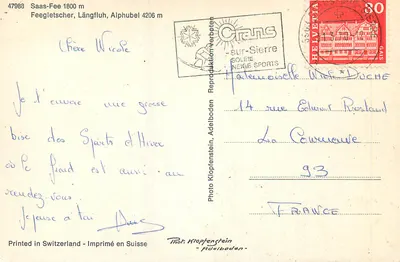 47988 Saas-Fee 1800 m
Feegletscher, Längfluh, Alphubel 4206 m
Chère Nicole
Je t'envoie une grosse
bise des Sports d'Hiver
où le froid est aussi au
rendez-vous.
Je pense à toi
Printed in Switzerland - Imprimé en Suisse
Photo Klopfenstein, Adelboden Reproduktion verboten
Phot. Klopfenstein
- Adelboden -
Crans
sur-Sierre
SOLEIL
NEIGE SPORTS
HELVETIA
30
Mademoiselle Nicole DUCHE
14 rue Edmond Rostand
La Courneuve
93
FRANCE